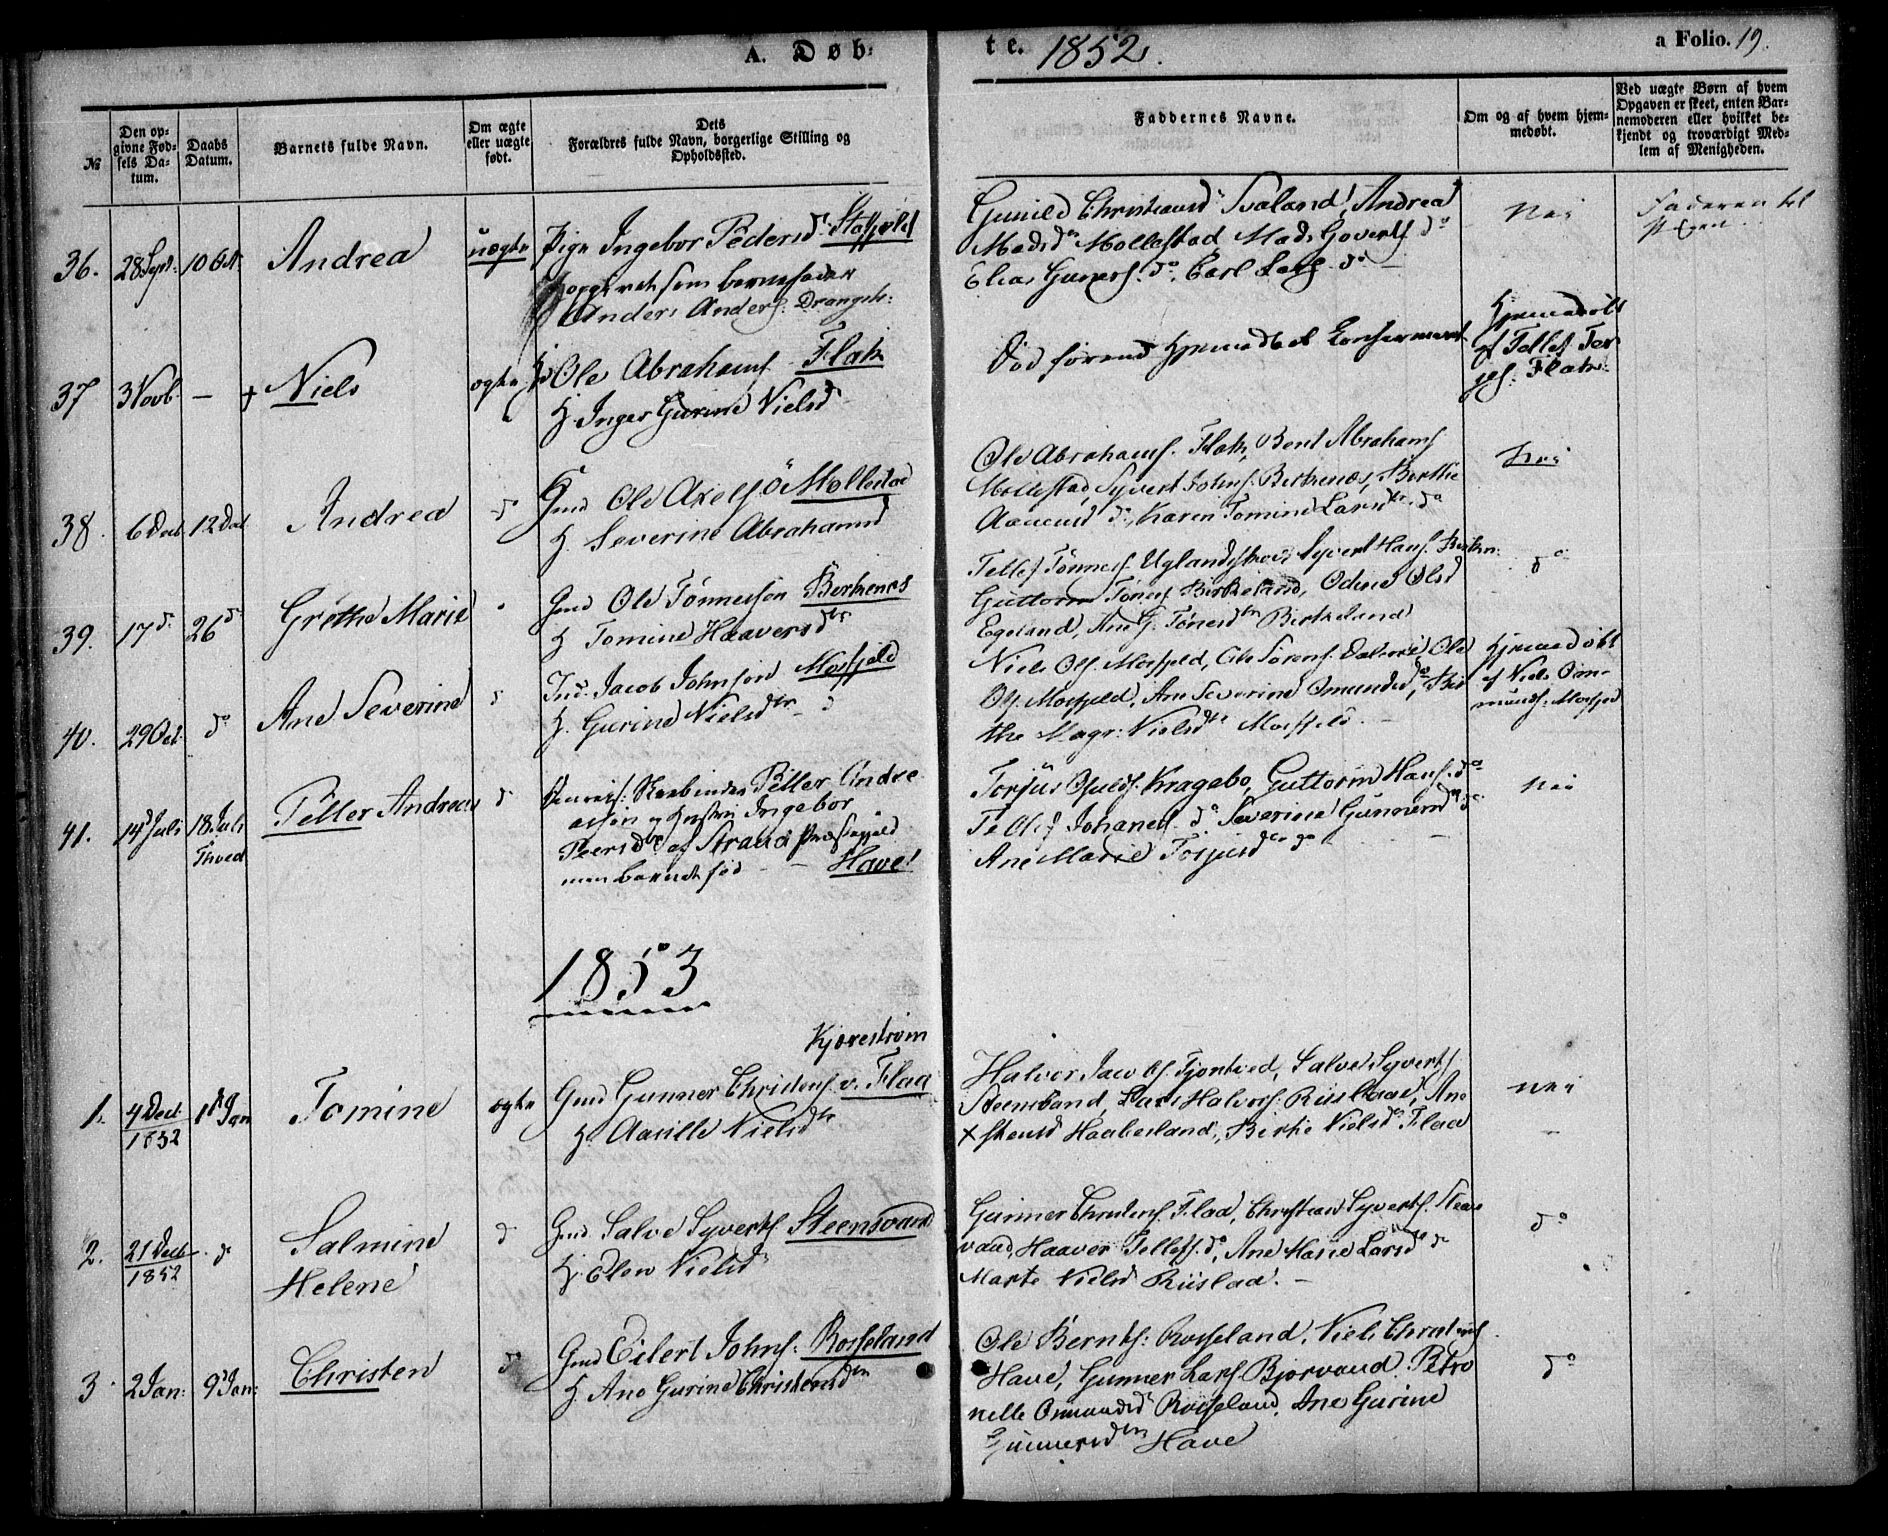 A. Døb-
te. 1852.
a Folio. 19.
№
Den op-
givne Fød-
sels Da-
tum.
Daabs
Datum.
Barnets fulde Navn.
Om ægte
eller uægte
født.
Dets
Forældres fulde Navn, borgerlige Stilling og
Opholdssted.
Faddernes Navne.
Om og af hvem hjem-
medøbt.
Ved uægte Børn af hvem
Opgaven er skeet, enten Bar-
nemoderen eller hvilket be-
kjendt og troværdigt Med-
lem af Menigheden.
36. 28 Sept: 10 Oct Andrea uægte Pige Ingebor Peders d. Stapfjeld
opgivet som barnefader
Anders Anders. Drangsh:
Gunild Christensd Svaland, Andrea
Mads dr Mollestad Mads Goverts do
Elias Guners. do, Carl Lars. do
Nei
Faderen til
37 3 Novb. — + Niels ægte Ole Abrahams. Flak
H. Inger Gurine Nielsd
Død førend Hjemmedaab Confirmeret
Hjemmedøbt
af Tellef Ter
jes. Flak.
38. 6 Dec 12 Dec Andrea d Gmd Ole Axels. Ö Mollestad
H. Severine Abrahamsd
Ole Abrahams. Flak, Bent Abrahams
Mollestad, Syvert Johns. Berkenes, Berthe
Aanensd do, Karen Tomine Lars dtr do
Nei
39. 17 d. 26 d. Grethe Marie Gmd Ole Tønnesson Berkenes
H Tomine Haavers dtr
Tellef Tønnes. Uglandskov, Syvert Hans. Birken:
Guttorm Tønes. Birkeland, Odine Olsd
Egeland, Ane G. Tønesdtr Birkeland
do
40. 29 Oct. do Ane Severine d Ind. Jacob Johnson Mosfjeld
H. Gurine Nielsdtr d
Niels Ols. Mosfjeld, Ole Sørens. Dalene, Ole
Ols. Mosfjeld, Ane Severine Omundsd do, Bir
the Magr: Nielsdtr Mosfjeld.
Hjemmedøbt
af Niels Om-
munds. Mosfjeld
41. 14 Juli 18 Juli
Thved
Petter Andreas d Skræder Petter Andre
assen og Hustru Ingebor
Peersdtr af Strand
men barnet fød — Have
Torjus Osulds. Kragebo, Guttorm Hans. do
Tellef Johanes. do Severine Gunnersdtr do
Ane Marie Torjusdtr do
Nei
1853
Kjørestrøm
1. 4 Dec
1852
1 Jan Tomine ægte Gmd Gunner Christens. v. Flaa
H Aasille Nielsdtr.
Halvor Jacobs. Fjortved, Salve Syverts.
Steensvand, Lars Halvors. Riislaae, Ane
X Stensd Haabesland, Birthe Nielsd Flaa
Nei
2. 21 Dec
1852
d Salmine
Helene d Gmd Salve Syverts. Steensvand
H. Elen Nielsd
Gunner Christens. Flaa, Christian Syverts. Steens
vand, Haaver Tellefs. do, Ane Marie Larsd do
Marte Nielsd Riislaa.
do
3. 2 Jan: 9 Jan: Christen d Gmd Eilert Johns: Rosseland
H. Ane Gurine Christensdtr
Ole Bernts: Rosseland, Niels Christens
Have, Gunner Lars. Bjorvand. Petro
nelle Omundsd Rosseland. Ane Gurine
Gunnersdtr Have
do